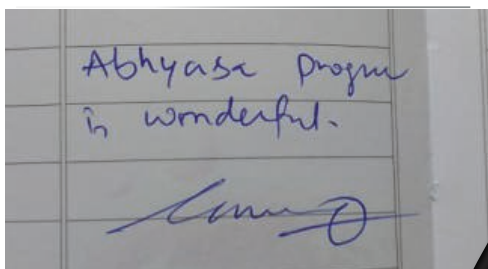 Abhyasa progm
is wonderful.